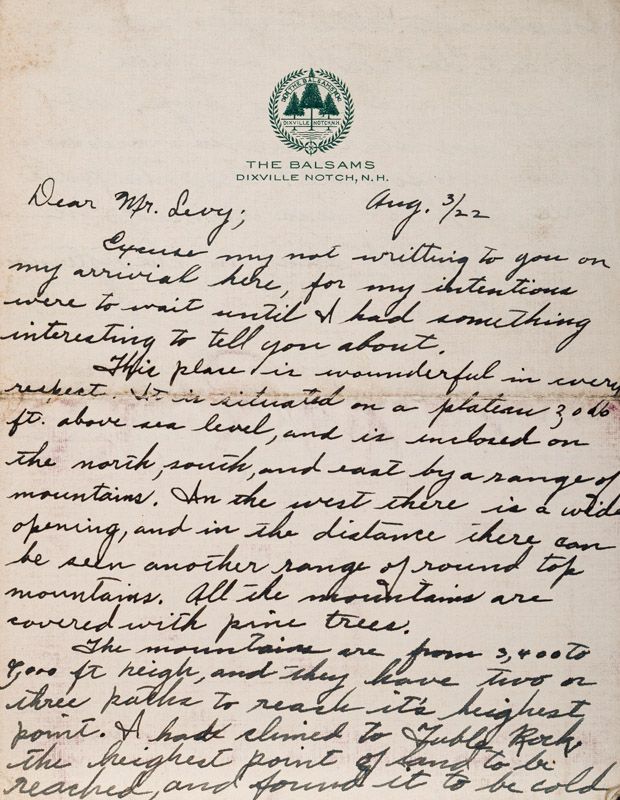 THE BALSAMS
DIXVILLE NOTCH, N.H.
THE BALSAMS
DIXVILLE NOTCH, N.H.
Dear Mr. Levy; Aug. 3/22
Excuse my not writting to you on
my arrivial here, for my intentions
were to wait until I had something
interesting to tell you about.
This place is wounderful in every
respect. It is situated on a plateau
ft. above sea level, and is inclosed on
the north, south, and east by a range of
mountains. In the west there is a wide
opening, and in the distance there can
be seen another range of round top
mountains. All the mountains are
covered with pine trees.
The mountains are from 3,400 to
4,000 ft heigh, and they have two or
three paths to reach it's heighest
point. I had climed to Table Rock
the heighest point of land to be
reached, and found it to be cold